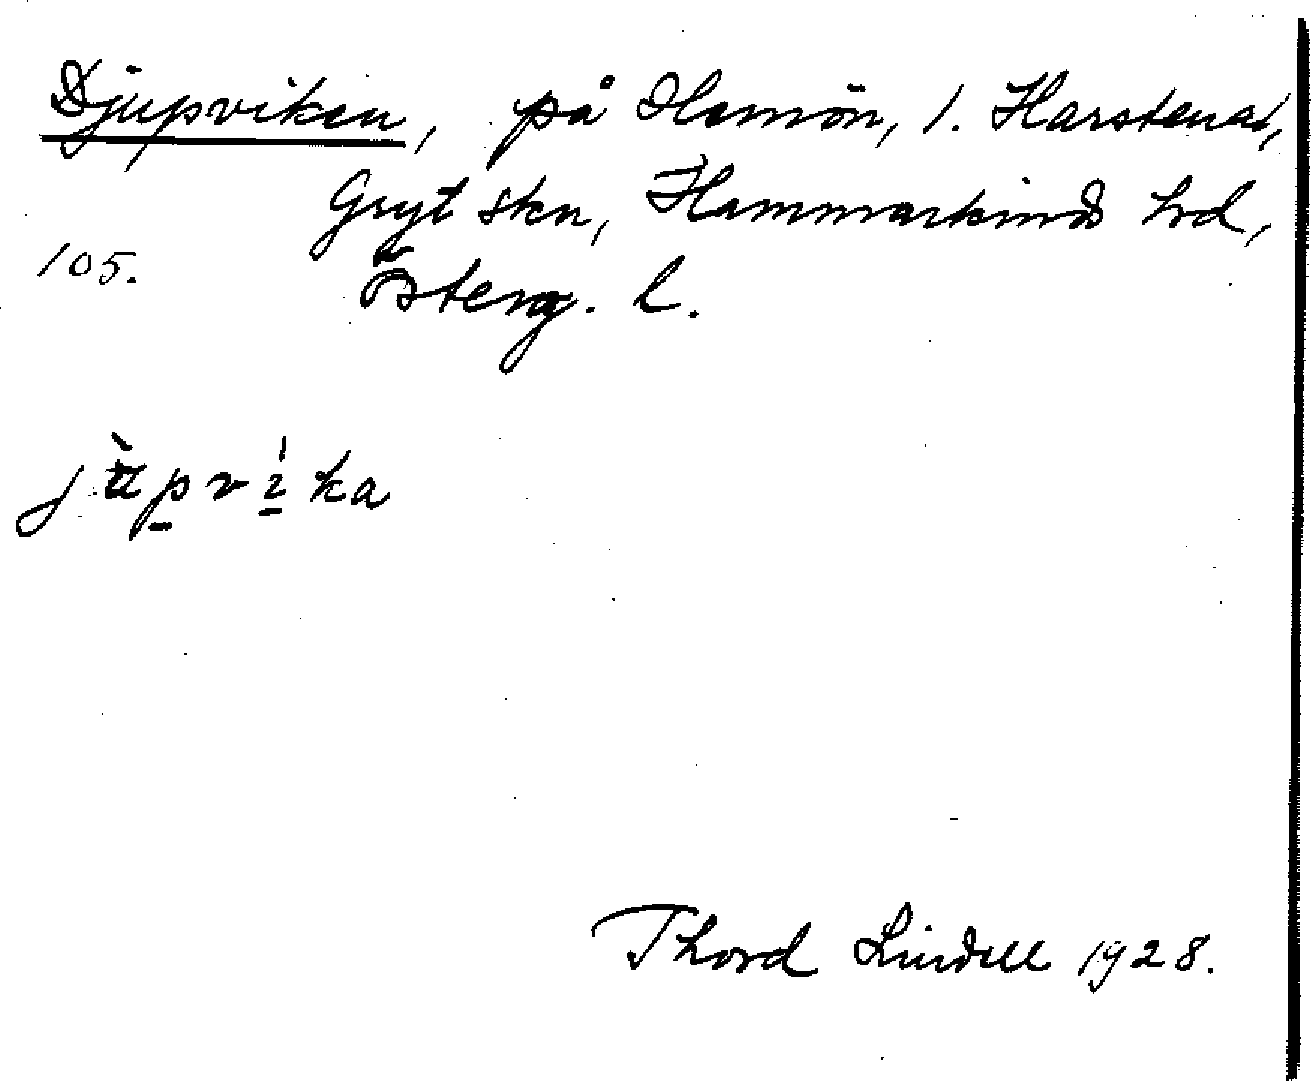 Djupviken, på Hamön, 1. Harstena,
Gryt skn, Hammarkinds hd,
105.
Österg. l.
jùpvika
Thord Lindell 1928.